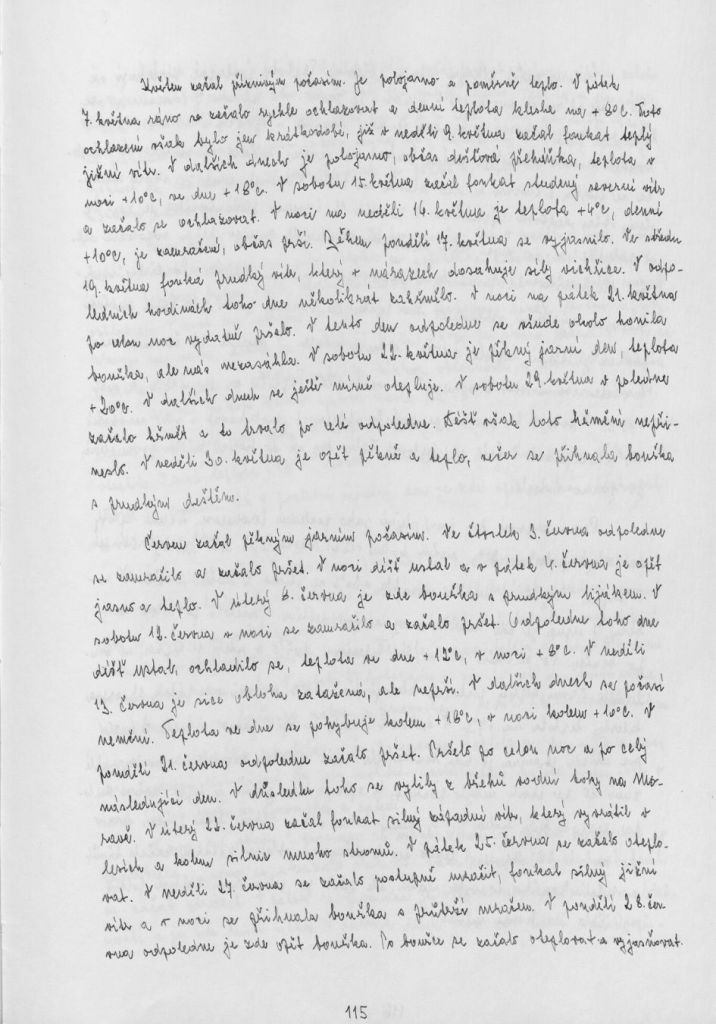 Květen začal příznivým počasím. Je polojasno a poměrně teplo. V pátek
7. května ráno se začalo rychle ochlazovat a denní teplota klesla na +8°C. Toto
ochlazení však bylo jen krátkodobé, již v neděli 9. května začal foukat teplý
jižní vítr. V dalších dnech je polojasno, občas dešťová přeháňka, teplota v
noci +10°C, ve dne +18°C. V sobotu 15. května začal foukat studený severní vítr
a začalo se ochlazovat. V noci na neděli 16. května je teplota +4°C, denní
+10°C, je zamračeno, občas prší. Během pondělí 17. května se vyjasnilo. Ve středu
19. května fouká prudký vítr, který v nárazech dosahuje síly vichřice. V odpo-
ledních hodinách toho dne několikrát zahřmělo. V noci na pátek 21. května
po celou noc vydatně pršelo. V tento den odpoledne se všude okolo honila
bouřka, ale nás nezasáhla. V sobotu 22. května je pěkný jarní den, teplota
+20°C. V dalších dnech se ještě mírně otepluje. V sobotu 29. května v poledne
začalo hřmět a to trvalo po celé odpoledne. Déšť však toto hřmění nepři-
neslo. V neděli 30. května je opět pěkně a teplo, večer se přihnala bouřka
s prudkým deštěm.
Červen začal pěkným jarním počasím. Ve čtvrtek 3. června odpoledne
se zamračilo a začalo pršet. V noci déšť ustal a v pátek 4. června je opět
jasno a teplo. V úterý 8. června je zde bouřka s prudkým lijákem. V
sobotu 12. června v noci se zamračilo a začalo pršet. Odpoledne toho dne
déšť ustal, ochladilo se, teplota ve dne +12°C, v noci +8°C. V neděli
13. června je sice obloha zatažená, ale neprší. V dalších dnech se počasí
nemění. Teplota ve dne se pohybuje kolem +18°C, v noci kolem +10°C. V
pondělí 21. června odpoledne začalo pršet. Pršelo po celou noc a po celý
následující den. V důsledku toho se vylily z břehů vodní toky na Mo-
ravě. V úterý 22. června začal foukat silný západní vítr, který vyvrátil v
lesích a kolem silnic mnoho stromů. V pátek 25. června se začalo oteplo-
vat. V neděli 27. června se začalo postupně mračit, foukal silný jižní
vítr a v noci se přihnala bouřka s průtrží mračen. V pondělí 28. čer-
vna odpoledne je zde opět bouřka. Po bouřce se začalo oteplovat a vyjasňovat.
115